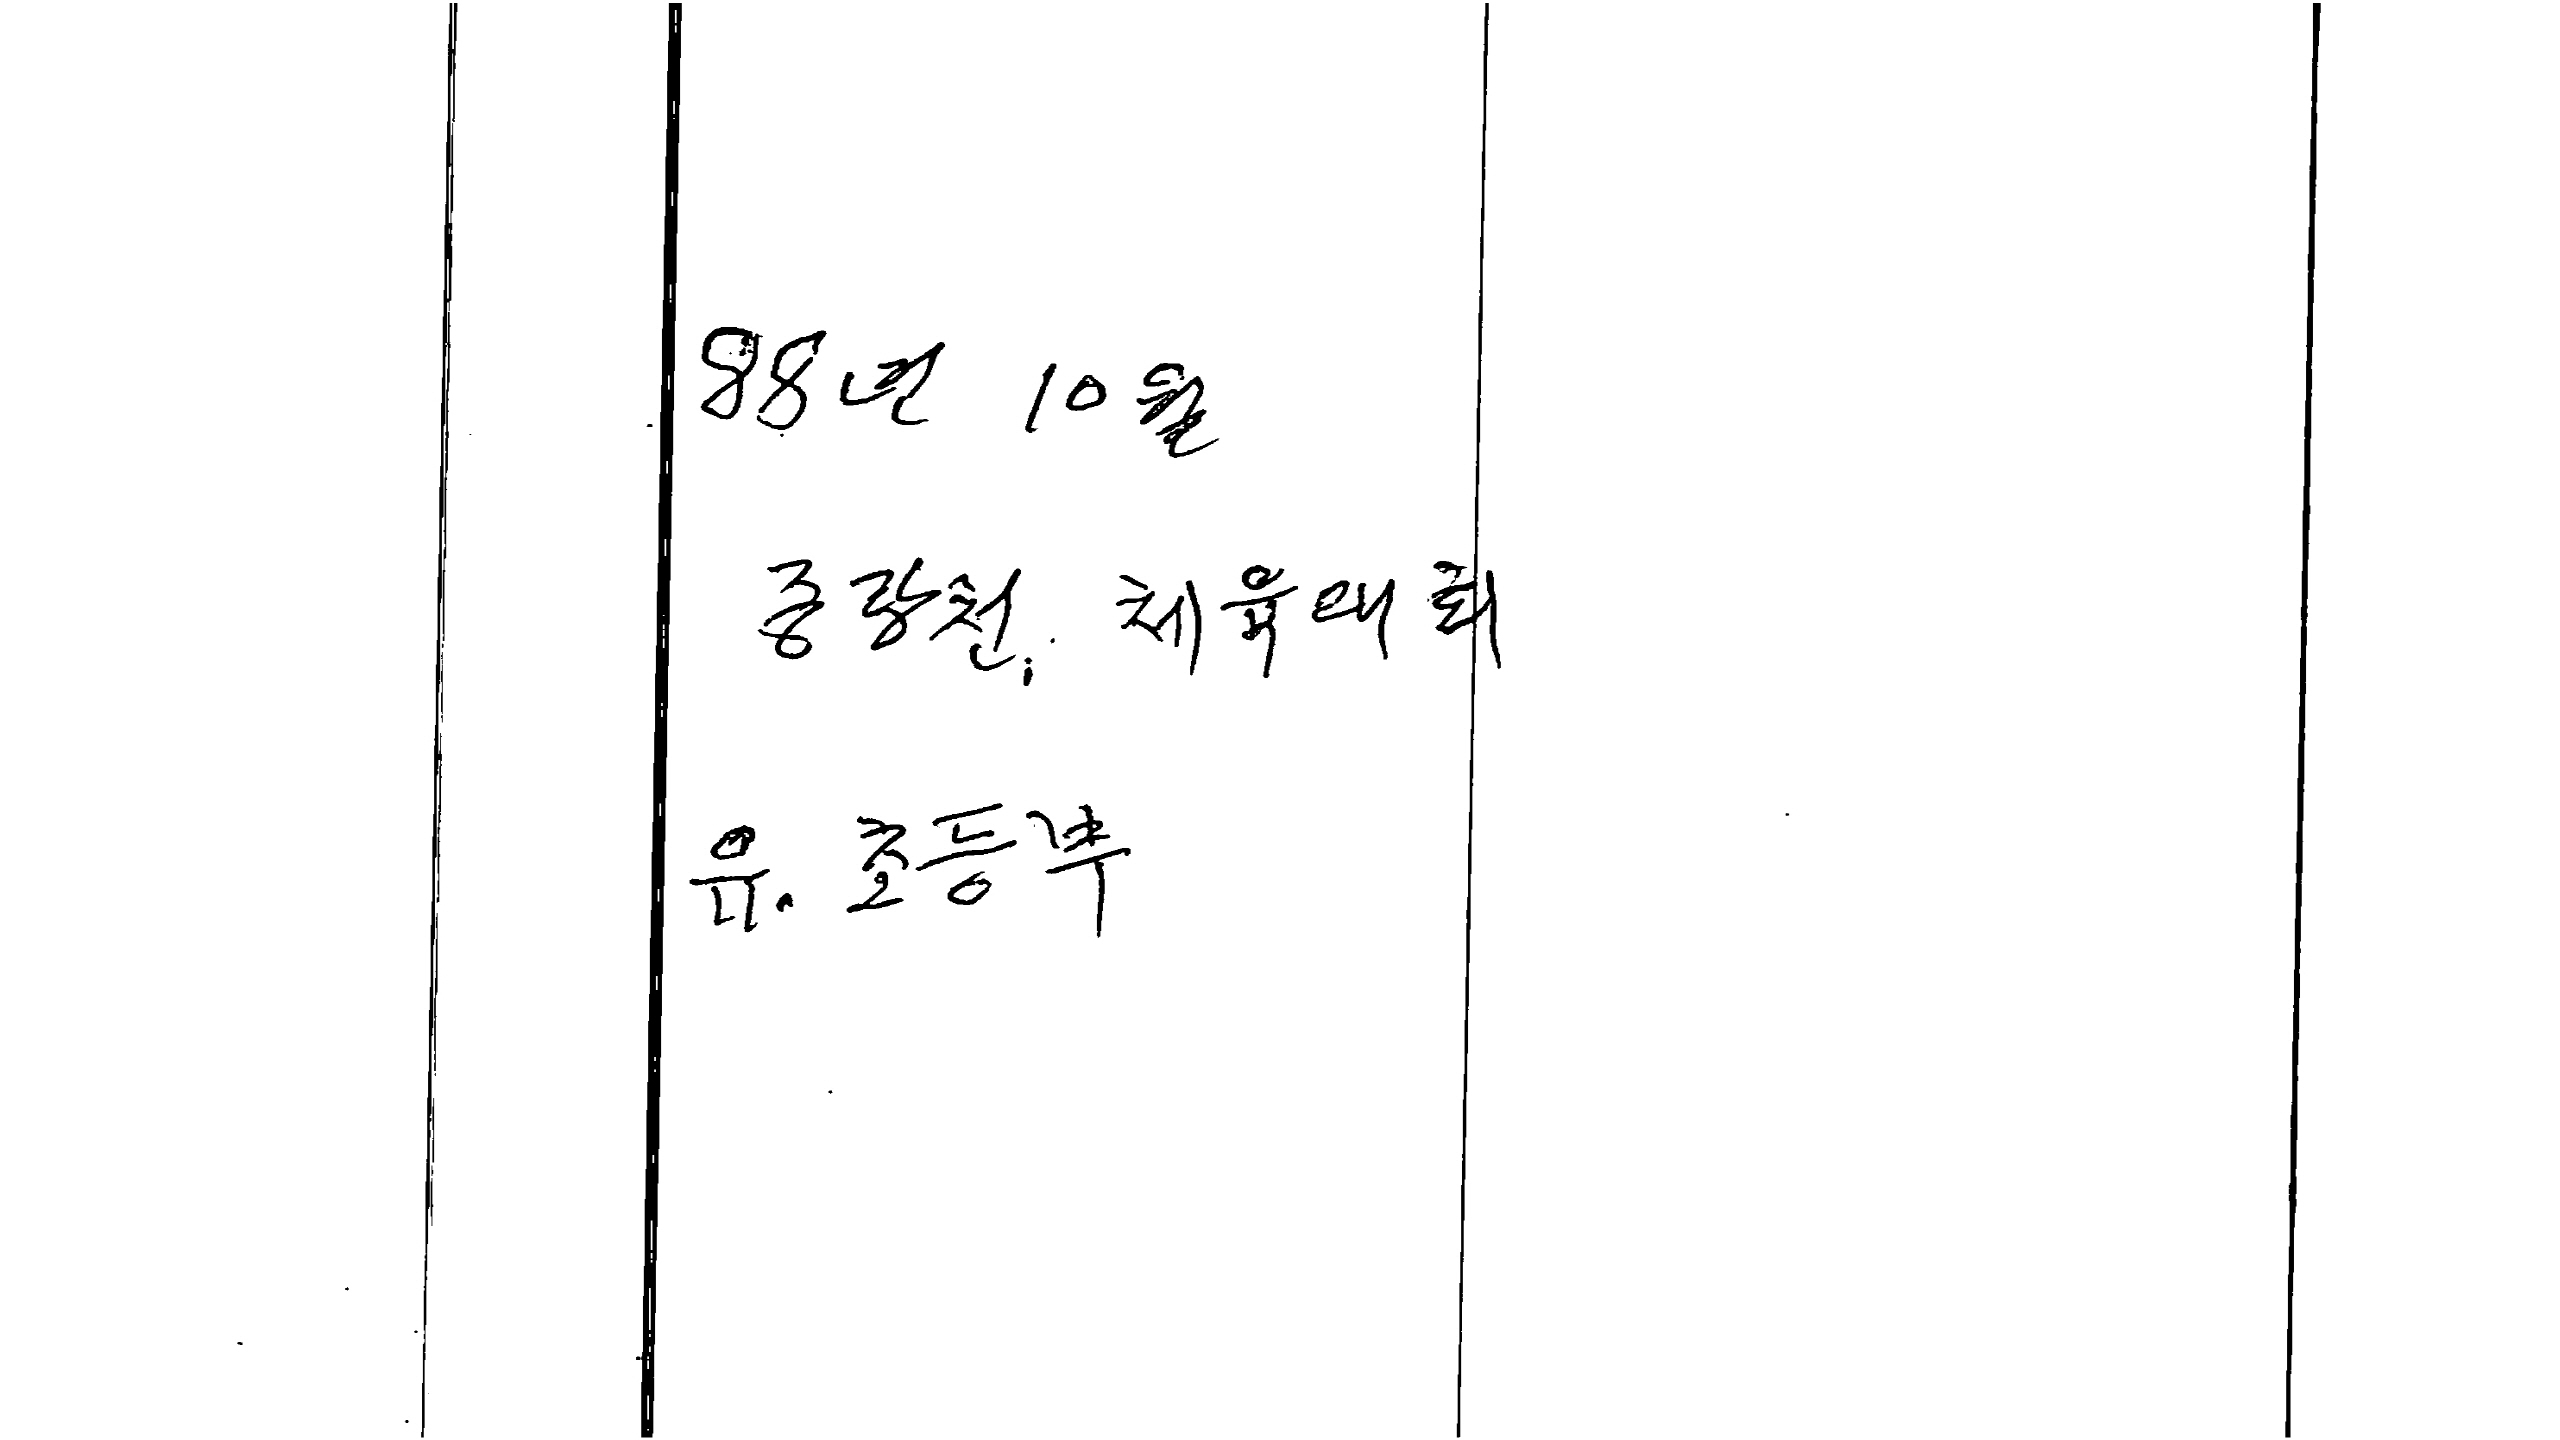 88년 10월
중랑천. 체육대회
유. 초등부